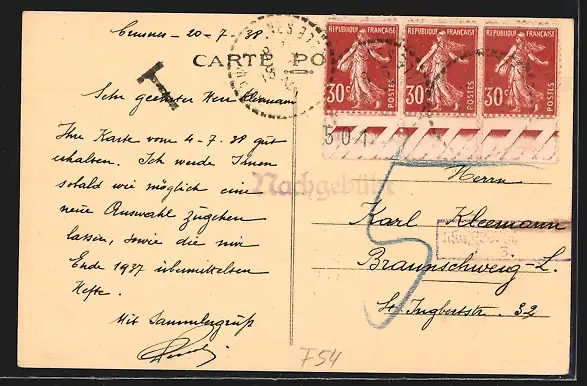 20-7-38
CARTE PO
T
Sehr geehrter Herr Kleemann
Ihre Karte vom 4-7-38 gut
erhalten. Ich werde Ihnen
sobald wie möglich eine
neue Auswahl zugehen
lassen, sowie die mir
Ende 1937 übermittelten
Hefte.
Mit Sammlergruß
REPUBLIQUE FRANÇAISE REPUBLIQUE FRANÇAISE REPUBLIQUE FRANÇAISE
30c POSTES 30c POSTES 30c POSTES
501
Nachgebühr
5
Herrn
Karl Kleemann
Braunschweig-L.
St. Ingbertstr. 32
F54